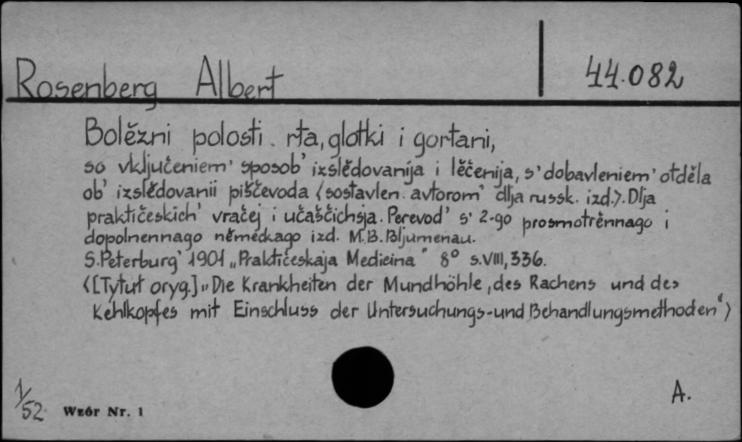 Rosenberg Albert
44.082
Bolězni polosti rta, glotki i gortani,
so vključeniem' sposob' izslědovanija i lěčenija, s' dobavleniem' otděla
ob' izslědovanii piščevoda (sostavlen. avtorom' dlja russk. izd.). Dlja
praktičeskich' vračej i učaščichsja. Perevod' s' 2-go prosmotrěnnago i
dopolnennago německago izd. M.B. Bljumenau.
S. Peterburg' 1901 „Praktičeskaja Medicina" 8° s. VIII, 336.
([Tytuł oryg.] „Die Krankheiten der Mundhöhle, des Rachens und des
Kehlkopfes mit Einschluss der Untersuchungs- und Behandlungsmethoden")
1/52
Wzór Nr. 1
A.